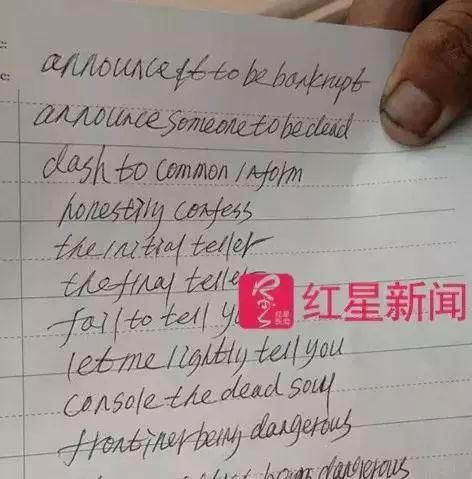 announce it to be bankrupt
announce someone to be dead
dash to common inform
honestily confess
the initial teller
the final teller
fail to tell
红星新闻
let me lightly tell you
console the dead soul
frontiner being dangerous
dangerous